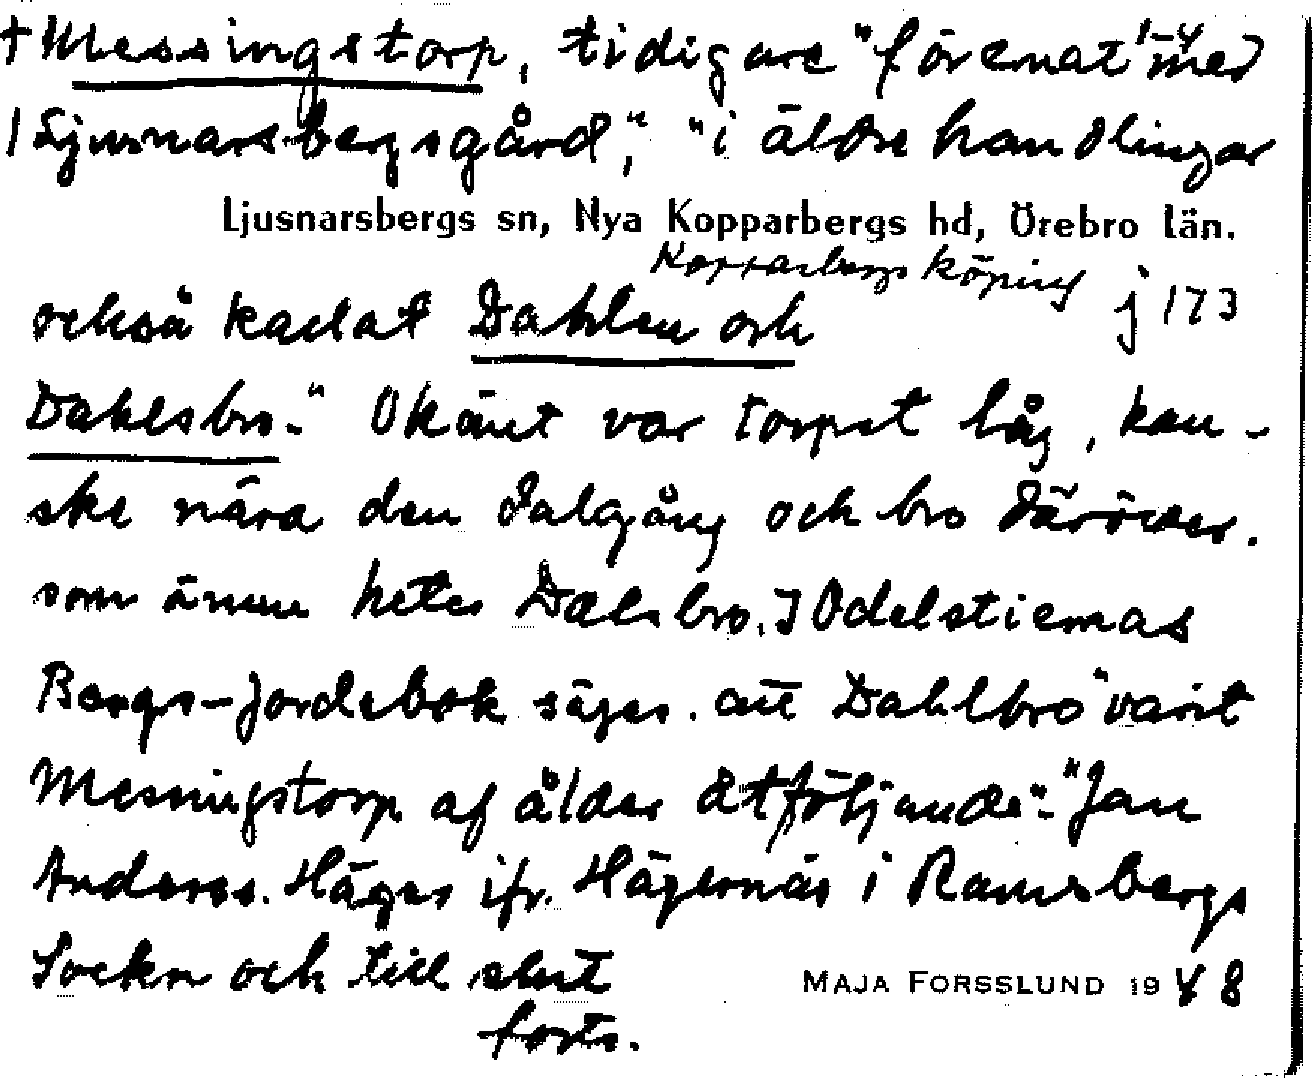 † Messingstorp, tidigare "förenat 1-4 med
Ljusnarsbergsgård", "i äldre handlingar
Ljusnarsbergs sn, Nya Kopparbergs hd, Örebro län.
Kopparbergs köping
j 173
också kallat Dahlen och
Dahlsbro." Okänt var torpet låg, kan-
ske nära den dalgång och bro däröver.
som ännu heter Dalsbro. I Odelstiernas
Bergs-Jordebok säges. att Dahlbro "varit
Messingstorp af ålder åtföljande". "Jan
Anderss. Häger ifr. Hägernäs i Ramsbergs
Sockn och till slut
MAJA FORSSLUND 1948
forts.